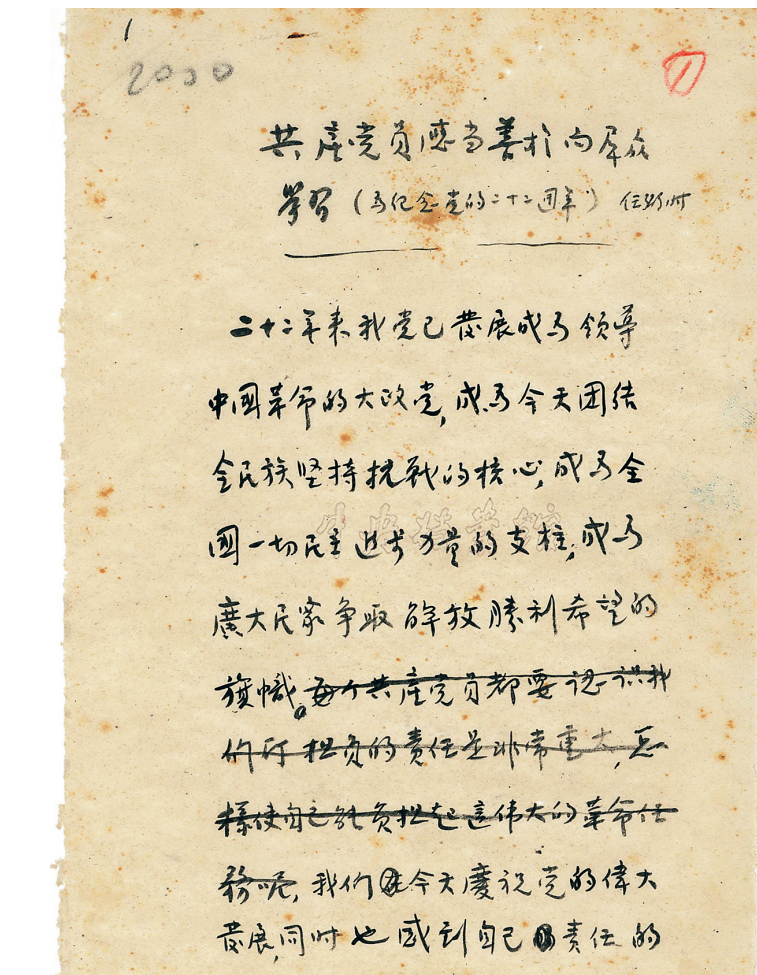 1
2000
1
共產党员應当善於向群众
學習（为纪念党的二十二週年）任弼时
二十二年来我党已發展成为领导
中國革命的大政党，成为今天团结
全民族坚持抗戰的核心，成为全
國一切民主进步力量的支柱，成为
廣大民众争取解放勝利希望的
旗幟。每个共產党员都要认识我
们所担负的责任是非常重大，怎
樣使自己能负担起這伟大的革命任
務呢，我们在今天慶祝党的偉大
發展，同时也感到自己责任的